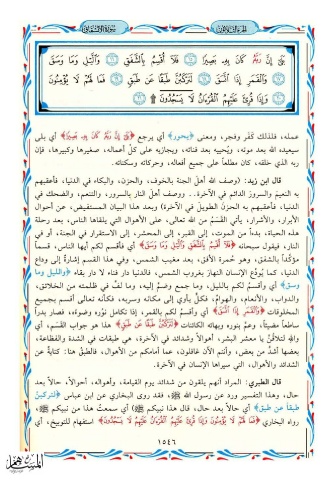 الجزء الثلاثون
سورة الانشقاق
بَلَىٰ إِنَّ رَبَّهُ كَانَ بِهِ بَصِيرًا ١٥ فَلَا أُقْسِمُ بِالشَّفَقِ ١٦ وَاللَّيْلِ وَمَا وَسَقَ
١٧ وَالْقَمَرِ إِذَا اتَّسَقَ ١٨ لَتَرْكَبُنَّ طَبَقًا عَن طَبَقٍ ١٩ فَمَا لَهُمْ لَا يُؤْمِنُونَ
٢٠ وَإِذَا قُرِئَ عَلَيْهِمُ الْقُرْآنُ لَا يَسْجُدُونَ
عمله، فلذلك كفر وفجر، ومعنى ﴿يحور﴾ أي يرجع ﴿بَلَىٰ إِنَّ رَبَّهُ كَانَ بِهِ بَصِيرًا﴾ أي بلى
سيعيده الله بعد موته، ويُحييه بعد فنائه، ويجازيه على كل أعماله، صغيرها وكبيرها، فإن
ربه الذي خلقه، كان مطلعاً على جميع أفعاله، وحركاته وسكناته.
قال ابن زيد: (وصف الله أهل الجنة بالخوف، والحزن، والبكاء في الدنيا، فأعقبهم
به النعيم والسرور الدائم في الآخرة.. ووصف أهل النار بالسرور، والتنعم، والضحك في
الدنيا، فأعقبهم به الحزن الطويل في الآخرة) وبعد هذا البيان المستفيض، عن أحوال
الأبرار، والأشرار، يأتي القسم من الله تعالى، على الأهوال التي يلقاها الناس، بعد رحلة
هذه الحياة، بدءاً من الموت، إلى القبر، إلى المحشر، إلى الاستقرار في الجنة، أو في
النار، فيقول سبحانه ﴿فَلَا أُقْسِمُ بِالشَّفَقِ وَاللَّيْلِ وَمَا وَسَقَ﴾ أي فأقسم لكم أيها الناس، قسماً
مؤكداً بالشفق، وهو حمرة الأفق، بعد مغيب الشمس، وفي هذا القسم إشارة إلى وداع
الدنيا، كما يودع الإنسان النهار بغروب الشمس، فالدنيا دار فناء لا دار بقاء ﴿والليل وما
وسق﴾ أي وأقسم لكم بالليل، وما جمع وضم إليه، وما لف في ظلمته من الخلائق،
والدواب، والأنعام، والهوام، فكل يأوي إلى مكانه وسربه، فكأنه تعالى أقسم بجميع
المخلوقات ﴿وَالْقَمَرِ إِذَا اتَّسَقَ﴾ أي وأقسم لكم بالقمر، إذا تكامل نوره وضوءه، فصار بدراً
ساطعاً مضيئاً، وعم بنوره وبهائه الكائنات ﴿لَتَرْكَبُنَّ طَبَقًا عَن طَبَقٍ﴾ هذا هو جواب القسم، أي
والله لتلاقن يا معشر البشر، أهوالاً وشدائد في الآخرة، هي طبقات في الشدة والفظاعة،
بعضها أشد من بعض، وأنتم الآن غافلون، عما أمامكم من الأهوال، فالطبق هنا: كناية عن
الشدائد والأهوال، التي سيراها الإنسان في الآخرة.
قال الطبري: المراد أنهم يلقون من شدائد يوم القيامة، وأهواله، أحوالاً، حالاً بعد
حال، وهذا التفسير ورد عن رسول الله ﷺ، فقد روى البخاري عن ابن عباس ﴿لتركبن
طبقا عن طبق﴾ أي حالاً بعد حال، قال هذا نبيكم ﷺ) أي سمعت هذا من نبيكم ﷺ،
رواه البخاري ﴿فَمَا لَهُمْ لَا يُؤْمِنُونَ وَإِذَا قُرِئَ عَلَيْهِمُ الْقُرْآنُ لَا يَسْجُدُونَ﴾ استفهام للتوبيخ، أي
١٥٤٦